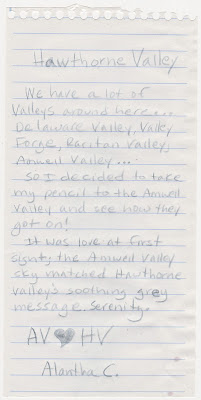 Hawthorne Valley
We have a lot of
Valleys around here...
Delaware Valley, Valley
Forge, Raritan Valley,
Amwell Valley...
So I decided to take
my pencil to the Amwell
Valley and see how they
got on!
It was love at first
sight; the Amwell Valley
sky matched Hawthorne
Valley's soothing grey
message. Serenity.
AV ♥ HV
Alantha C.